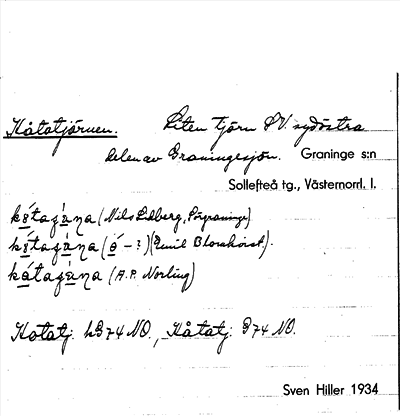 Kåtatjärnen. Liten tjärn SV. sydöstra
delen av Graningesjön. Graninge s:n
Sollefteå tg., Västernorrl. l.
kǻtagáṇa (Nils Edberg, Förgraninge)
(ó - ?) (Emil Blomkvist).
(A.P. Norling)
Kotatj. hB 74 NO., Kåtatj. G 74 NO.
Sven Hiller 1934